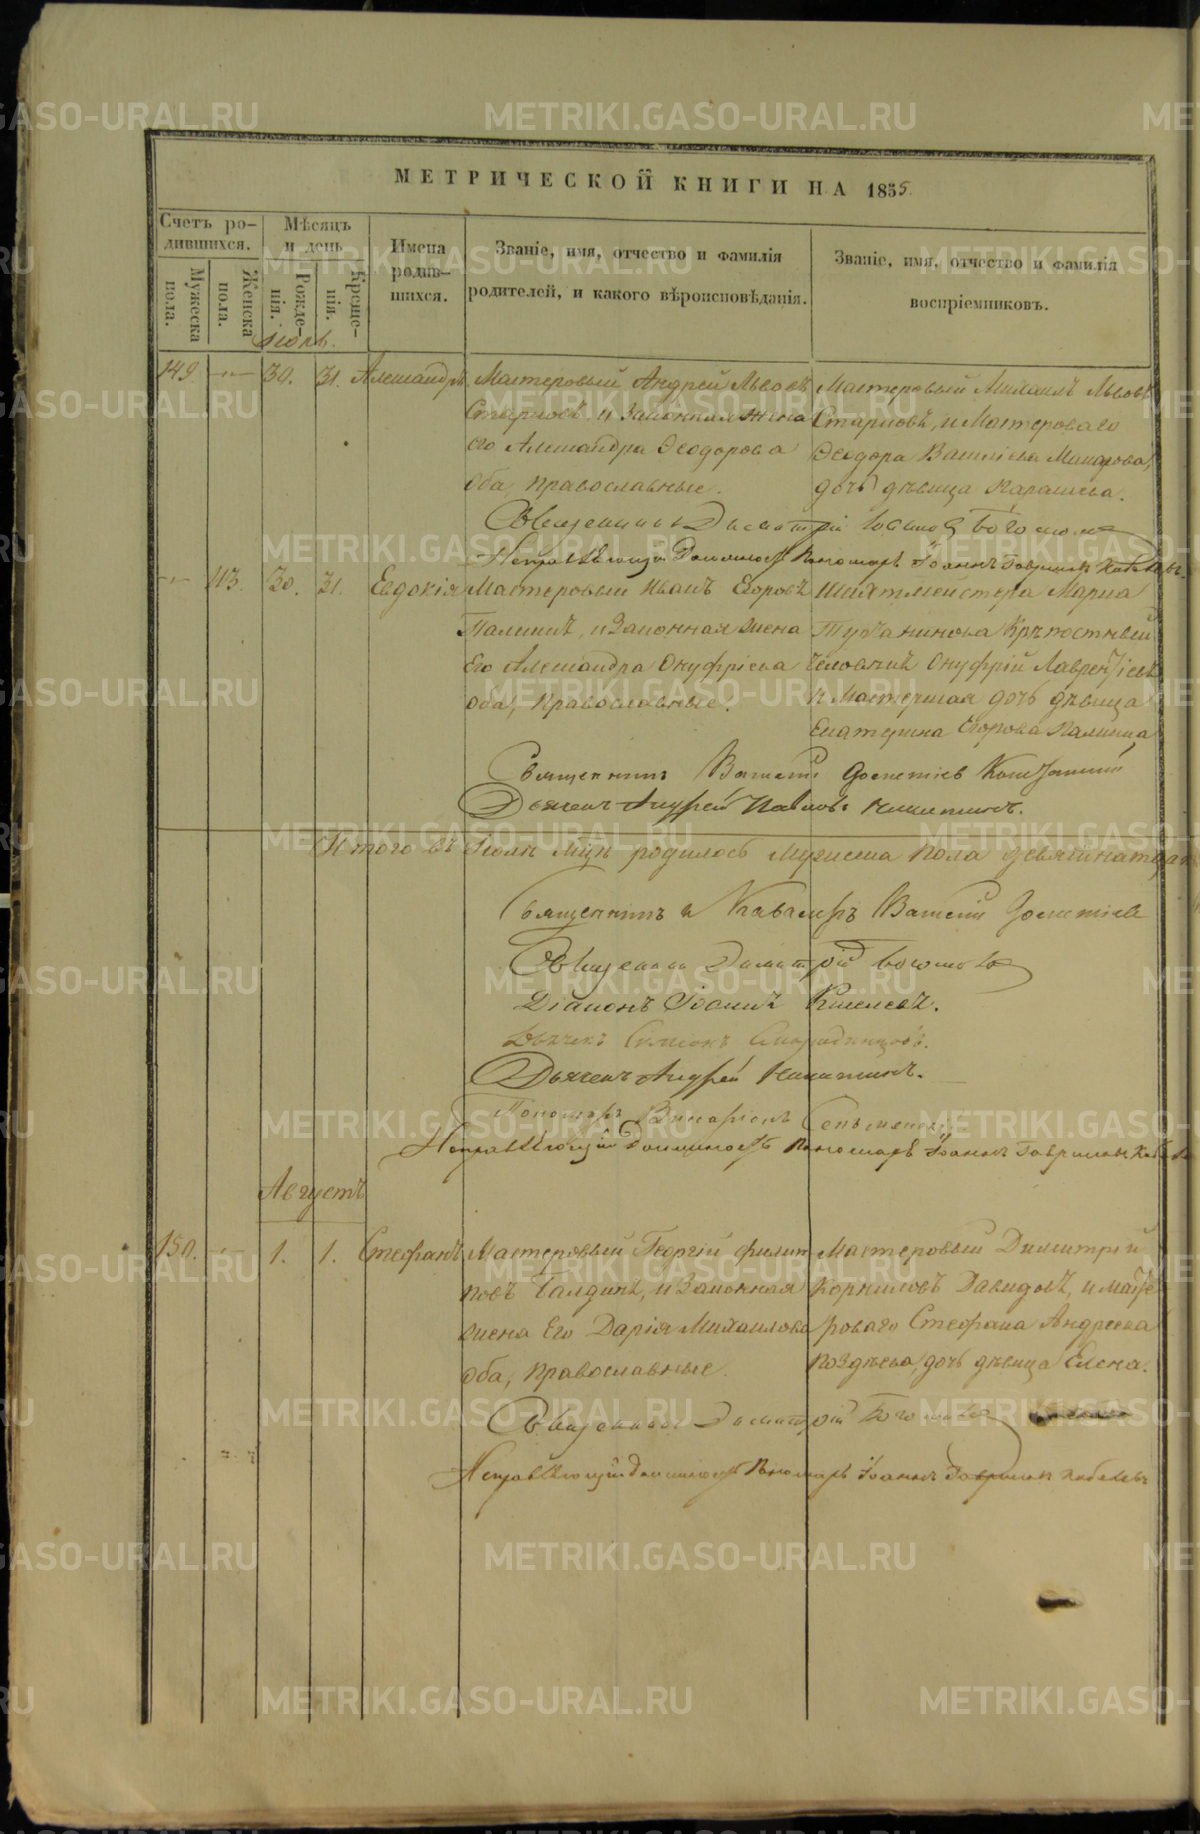 МЕТРИЧЕСКОЙ КНИГИ НА 1855.
Счетъ ро-
дившихся.
Мѣсяцъ
и день
Имена
родив-
шихся.
Званіе, имя, отчество и фамилія
родителей, и какого вѣроисповѣданія.
Званіе, имя, отчество и фамилія
воспріемниковъ.
Мужеска
пола.
Женска
пола.
Рожде-
нія.
Креще-
нія.
Іюль.
149. 30. 31. Александръ Мастеровый Андрей Львовъ
и законная жена
его Александра Ѳеодорова
оба православные.
Мастеровый Михаилъ Львовъ
и Мастероваго
Ѳеодора Васильева Макарова,
дочь дѣвица
Священникъ Димитрій
Исправляющій Должность Пономаря Іоаннъ Гавриловъ
113. 30. 31. Евдокія Мастеровый Иванъ Егоровъ
Палкинъ, и Законная жена
Его Александра Онуфріева
оба, Православные.
Шихтмейстера Марка
Турчанинова Крѣпостный
человѣкъ Онуфрій Лаврентіевъ
и Мастерская дочь дѣвица
Екатерина Егорова Палкина
Священникъ Василій
Дьячекъ Андрей Павловъ Никитинъ.
Итого въ Іюлѣ мцѣ родилось Мужеска Пола девятнатцать
Священникъ и Кавалеръ Василій
Священникъ Димитрій
Діаконъ Іоаннъ Киселевъ.
Дьячекъ
Дьячекъ Андрей Никитинъ.
Пономарь
Исправляющій Должность Пономаря Іоаннъ Гавриловъ
Августъ
150. 1. 1. Стефанъ Мастеровый Георгій Филип-
повъ Галдинъ, и Законная
жена Его Дарія Михаилова
оба, Православные.
Мастеровый Димитрій
Корниловъ Давидовъ, и масте-
роваго Стефана Андреева
Поздѣева, дочь дѣвица Елена.
Священникъ Димитрій
Исправляющій Должность Пономарь Іоаннъ Гавриловъ
METRIKI.GASO-URAL.RU